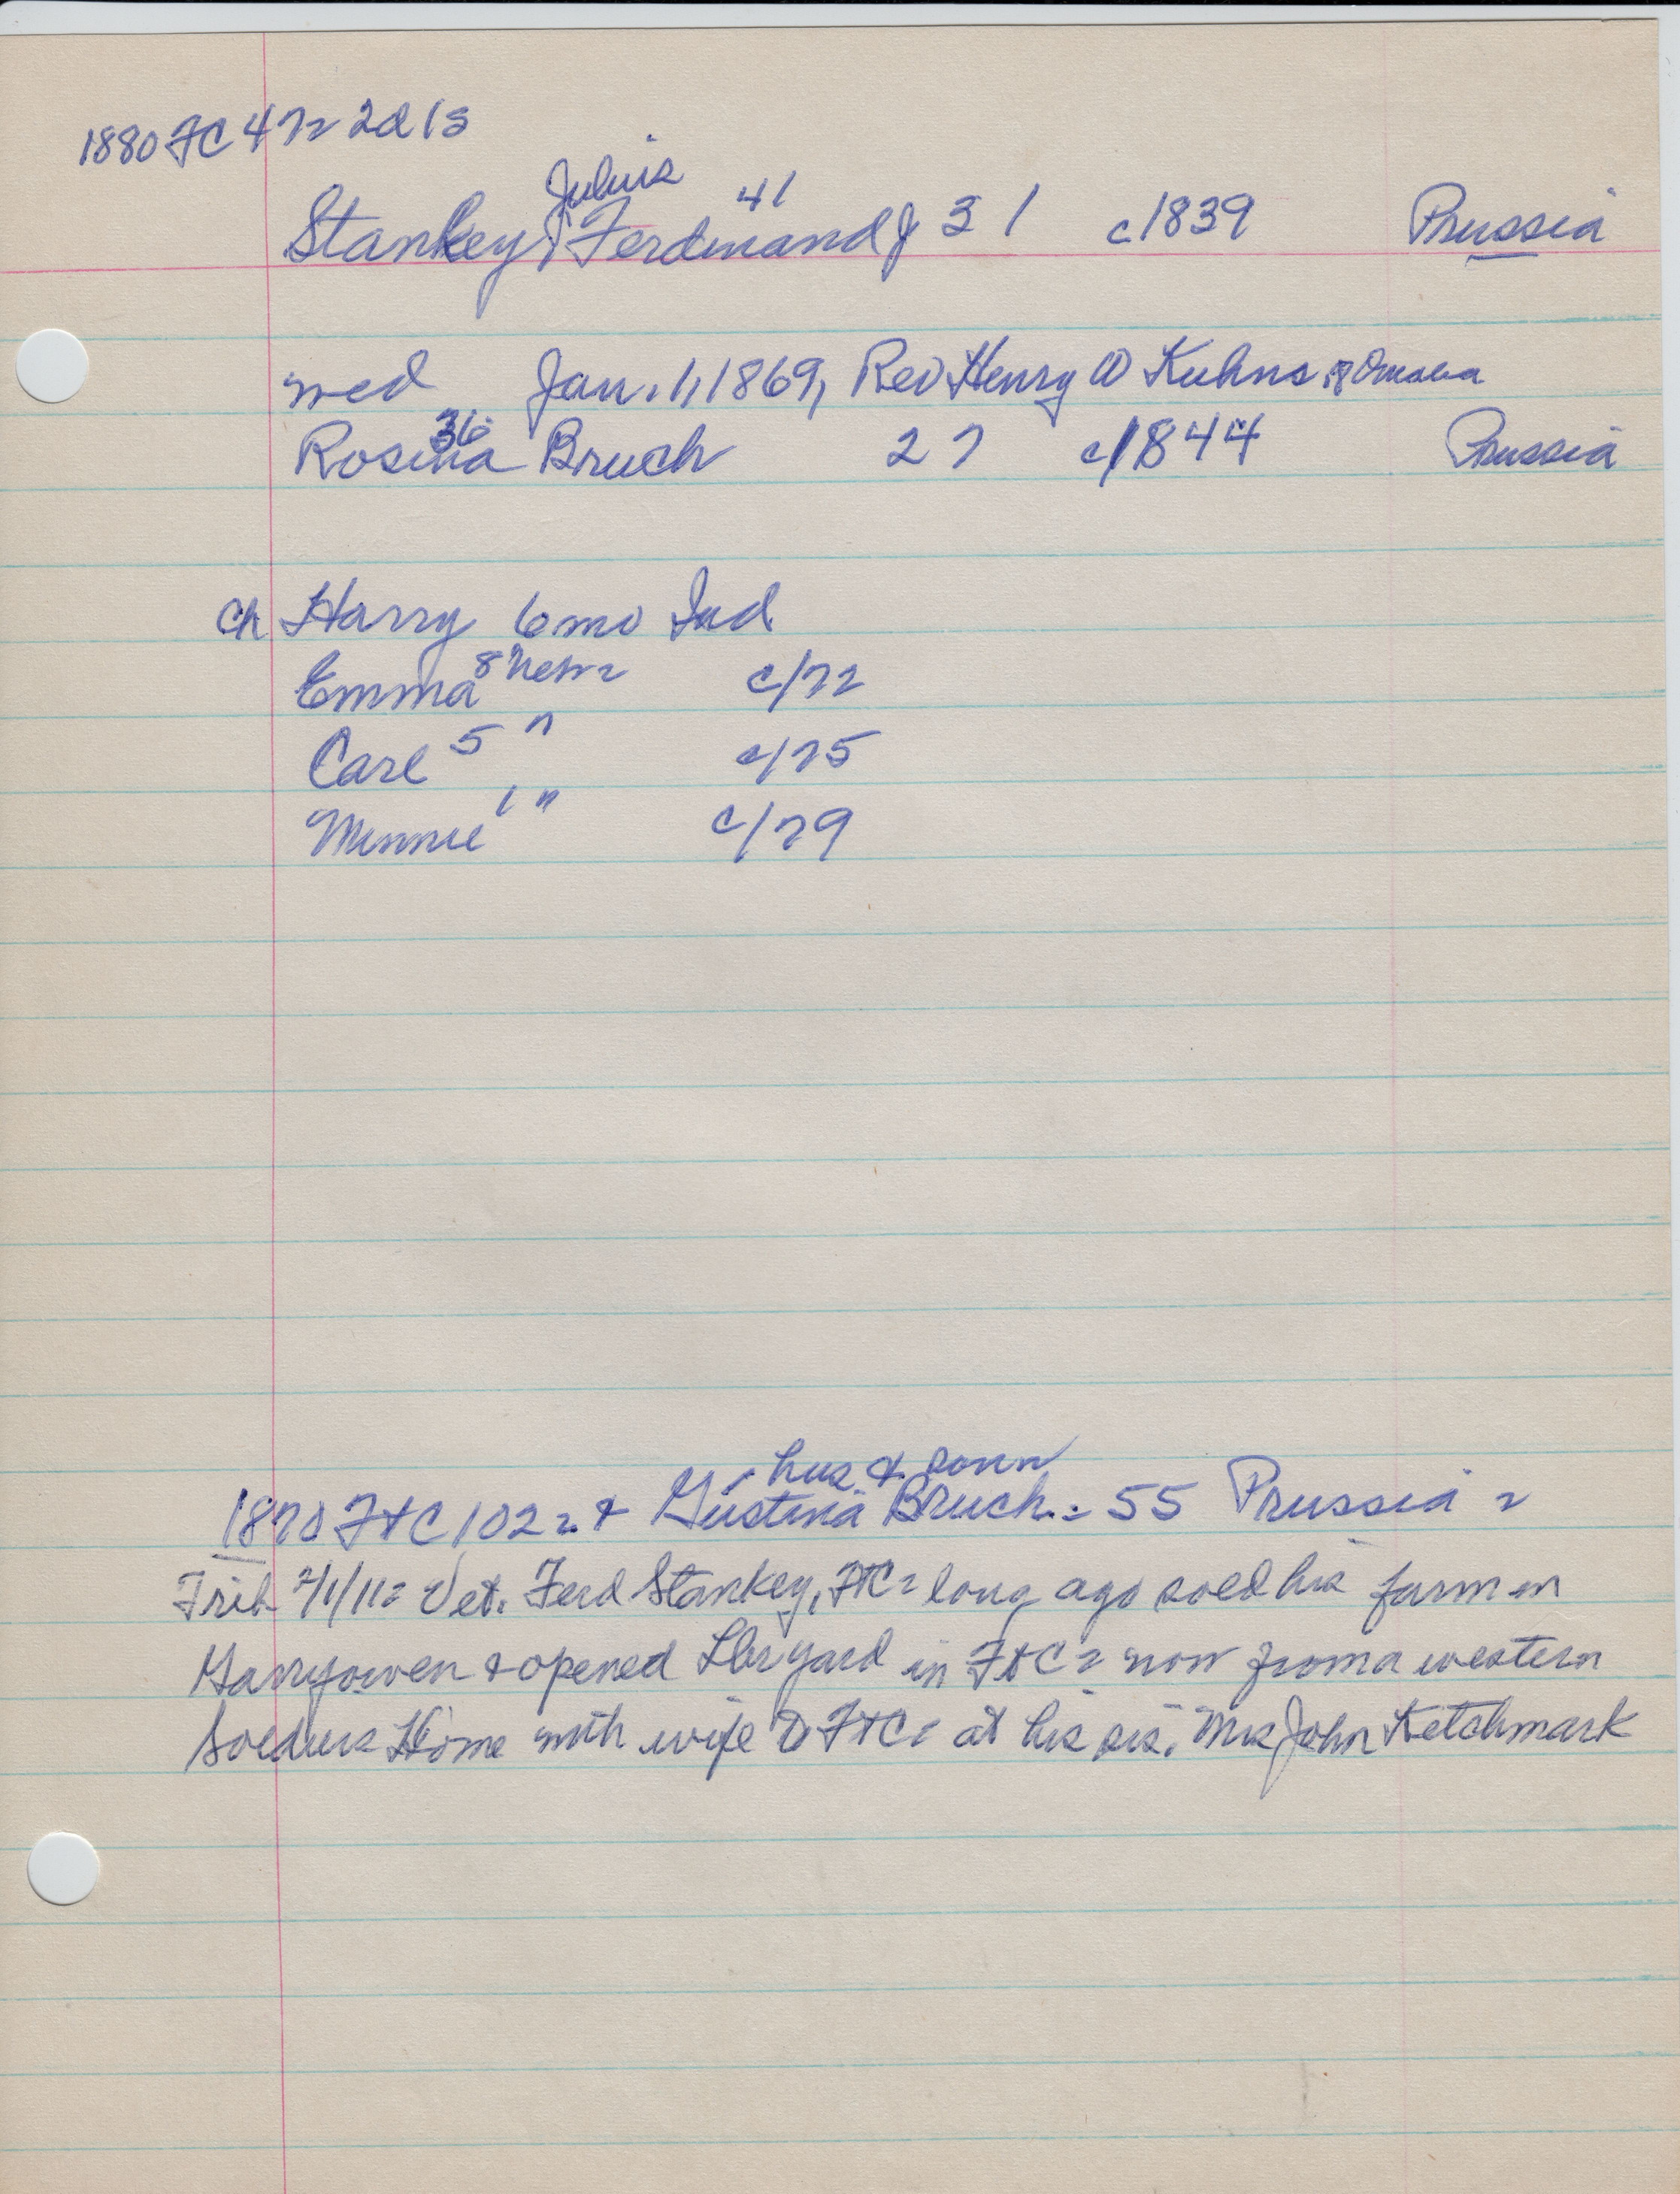 1880 FC 4 72 2d 1s
Julius 41
Stankey, Ferdinand J 31 c1839 Prussia
wed Jan. 1, 1869, Rev Henry W Kuhns of Omaha
36
Rosina Bruch 27 c/1844 Prussia
ch Harry 6 mo Ind
Emma 8 Nebr c/72
Carl 5 " c/75
Minnie 1 " c/79
hus &
1870 FtC 102 = + Gustina Bruch = 55 Prussia =
Trib 2/1/11 = Vet. Ferd Stankey, FtC = long ago sold his farm in
Garryowen & opened Lbr yard in FtC = now from a western
Soldiers Home with wife to FtC = at his sis. Mrs John Ketchmark